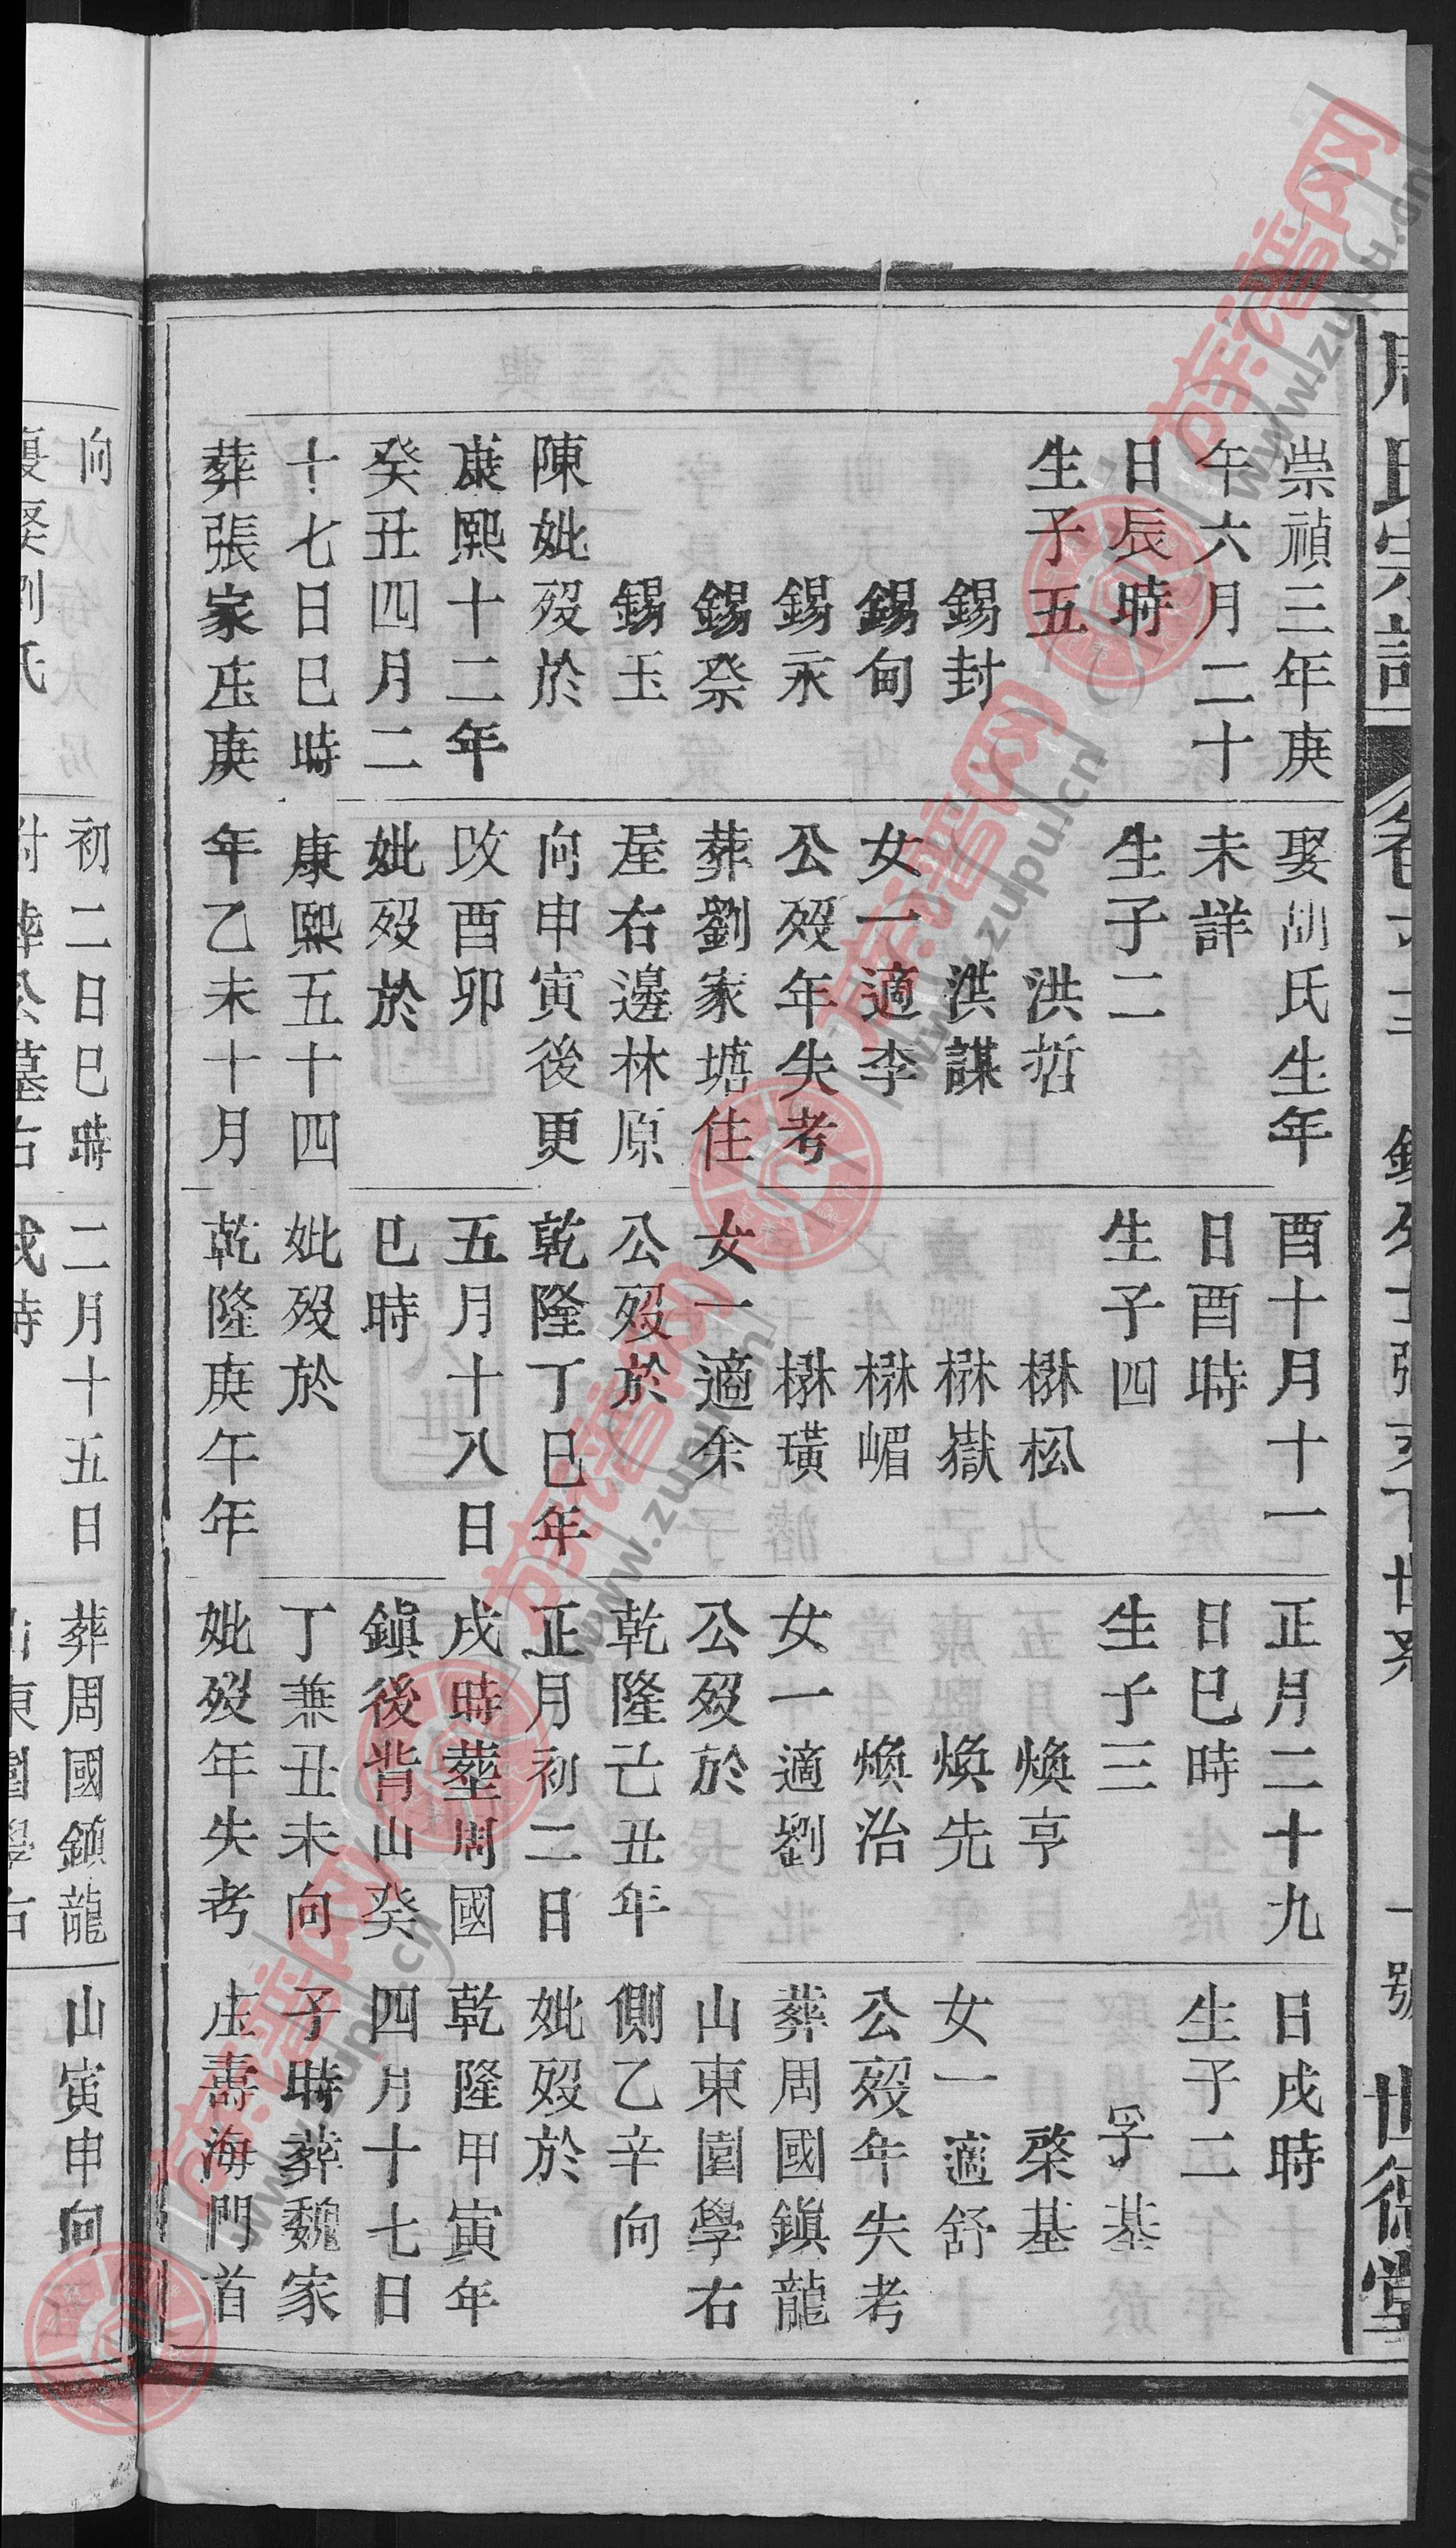 崇禎三年庚
午六月二十
日辰時
生子五
錫封
錫甸
錫永
錫祭
錫玉
陳妣歿於
康熙十二年
癸丑四月二
十七日巳時
葬張家庄庚
娶胡氏生年
未詳
生子二
洪哲
洪謀
女一適李
公歿年失考
葬劉家塘住
屋右邊林原
向申寅後更
攻酉卯
妣歿於
康熙五十四
年乙未十月
酉十月十一
日酉時
生子四
楙松
楙嶽
楙嵋
楙璜
女一適余
公歿於
乾隆丁巳年
五月十八日
巳時
妣歿於
乾隆庚午年
正月二十九
日巳時
生子三
煥亨
煥先
煥治
女一適劉
公歿於
乾隆己丑年
正月初二日
戌時葬周國
鎮後背山癸
丁兼丑未向
妣歿年失考
日戌時
生子二
孚基
棨基
女一適舒
公歿年失考
葬周國鎮龍
山東園學右
側乙辛向
妣歿於
乾隆甲寅年
四月十七日
子時葬魏家
庄壽海門首
向
初二日巳時
二月十五日
葬周國鎮龍
山寅申向
世德堂
www.zupu.cn
族譜网